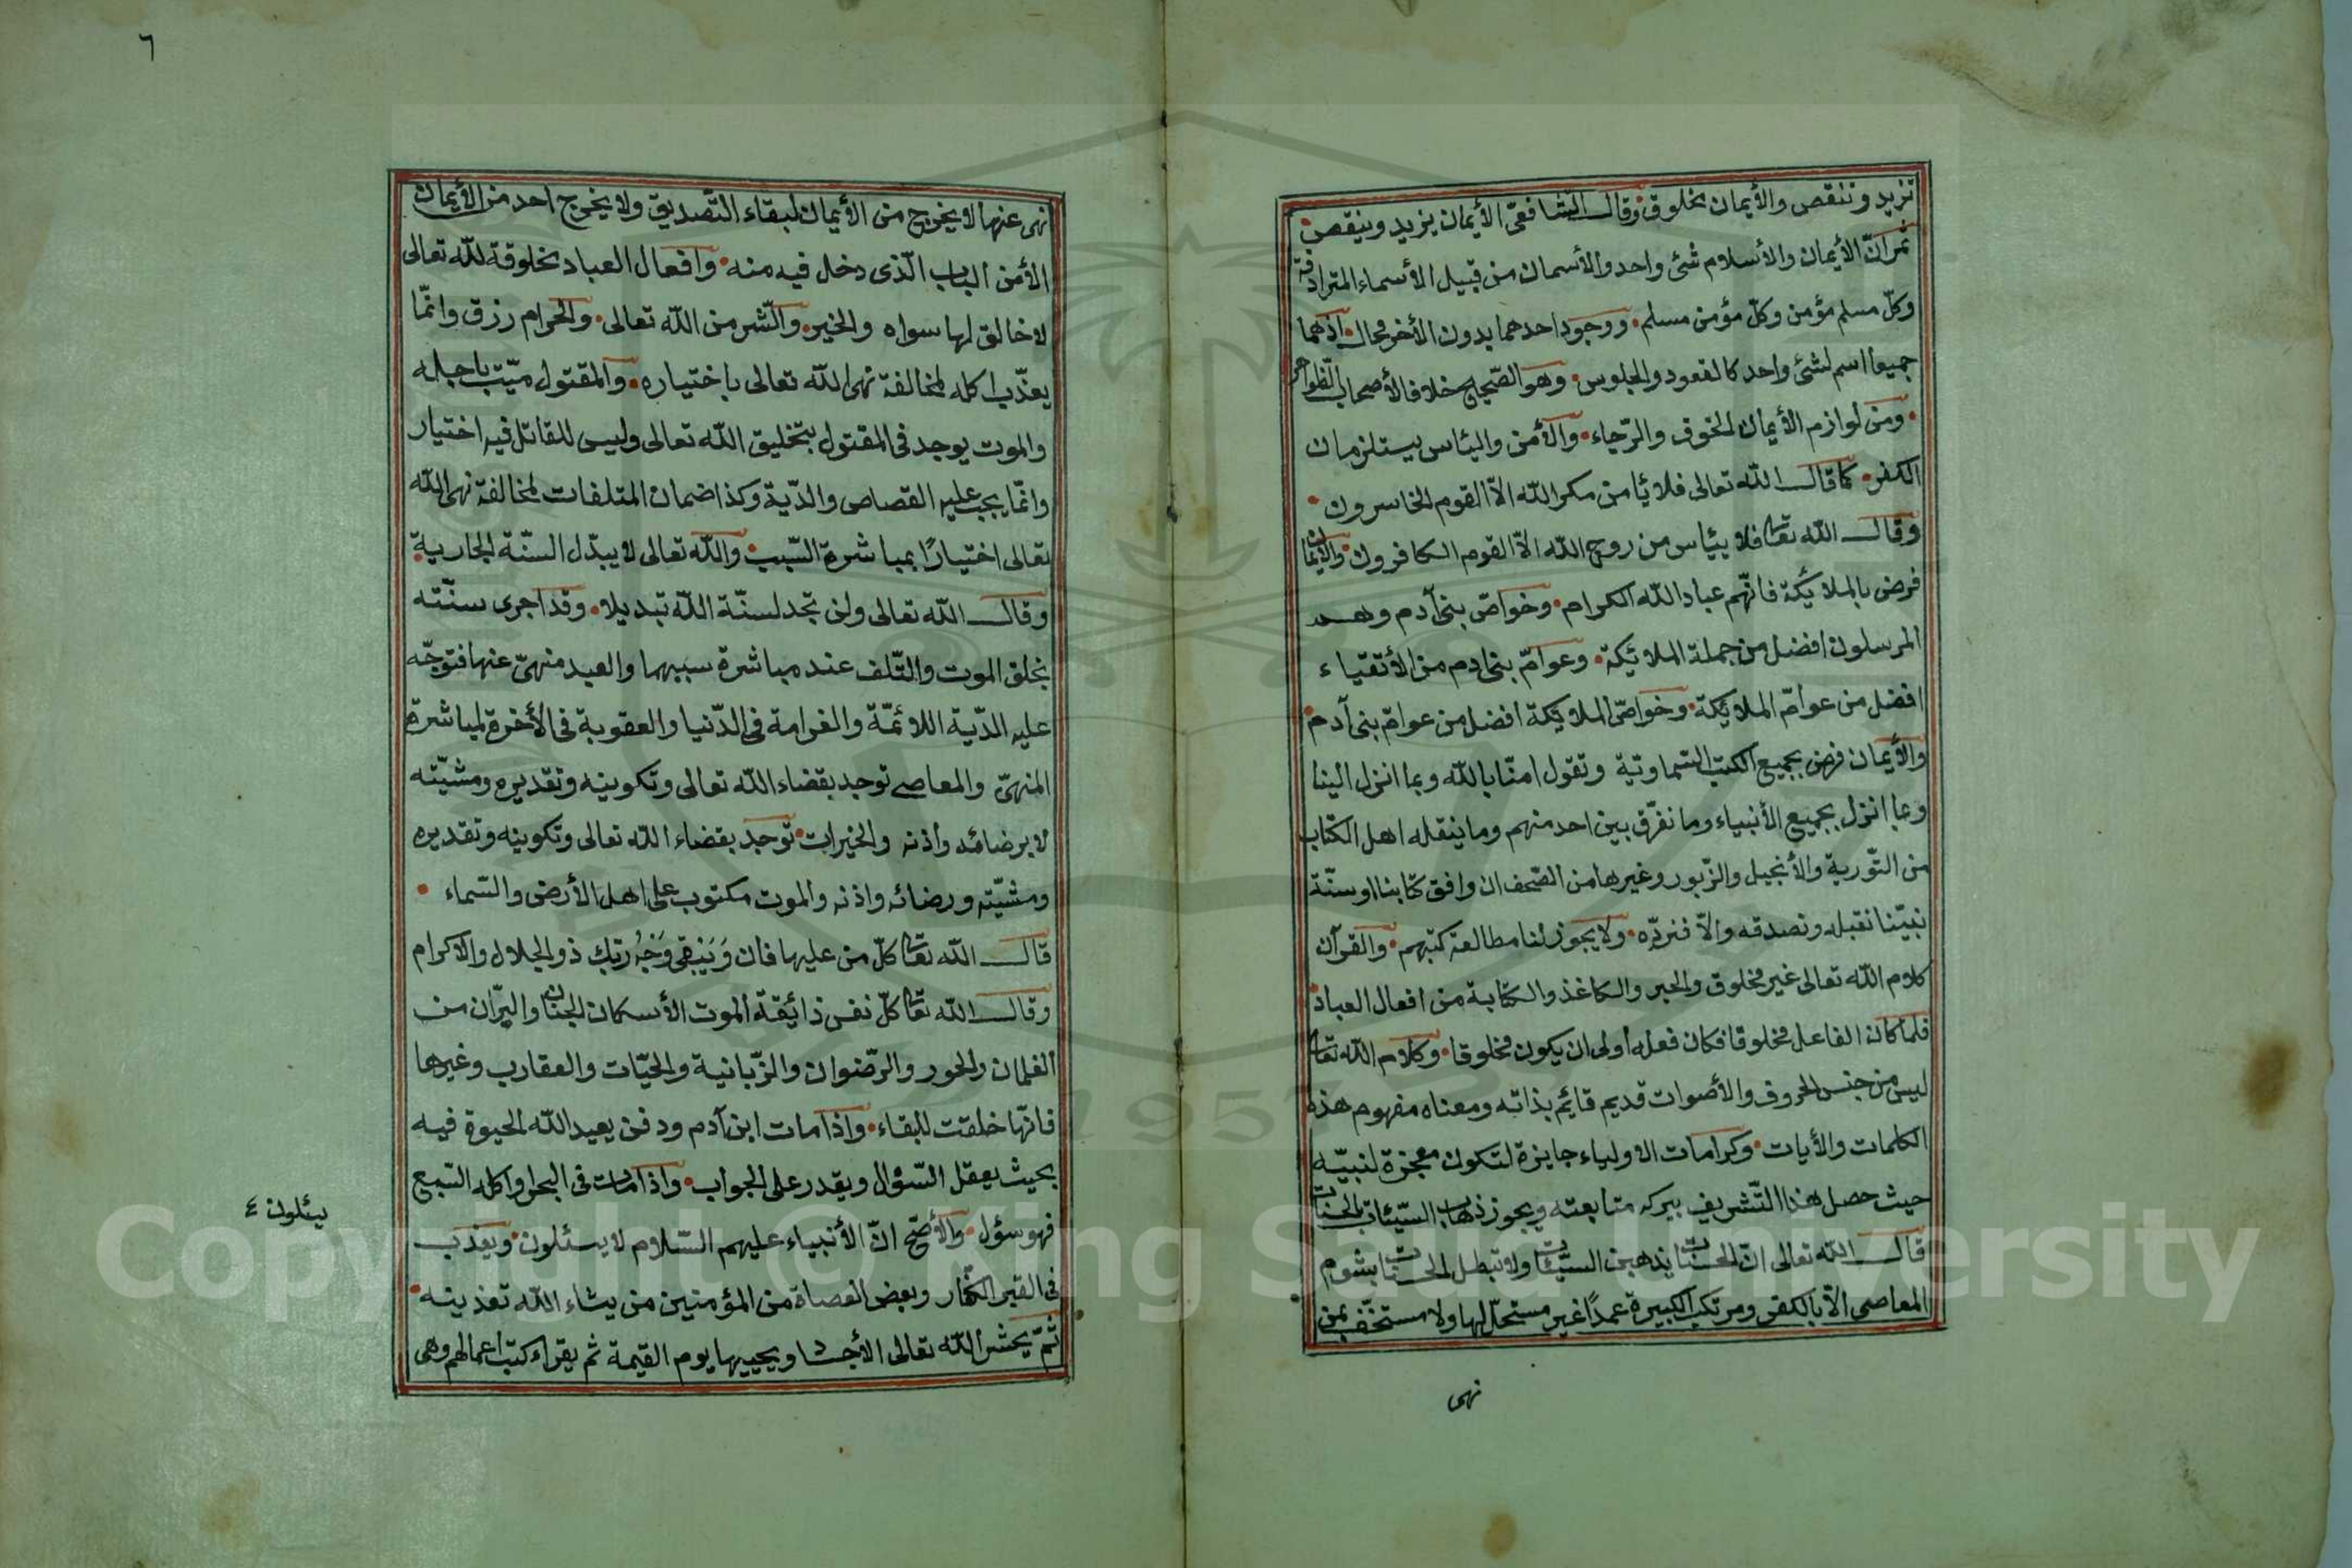 تزيد وتنقص والأيمان مخلوق وقال الشافعىّ الأيمان يزيد وينقص
ثمّ انّ الأيمان والأسلام شئ واحد والأسمان من قبيل الأسماء المترادفة
وكلّ مسلم مؤمن وكلّ مؤمن مسلم ووجود احدهما بدون الأخر محال اذهما
جميعا اسم لشئ واحد كالقعود والجلوس وهو الصّحيح خلافا لأصحاب الظّواهر
ومن لوازم الأيمان الخوف والرّجاء والأمن واليئاس يستلزمان
الكفر كما قال الله تعالى فلا يأمن مكر الله الاّ القوم الخاسرون
وقال الله تعا فلا ييئاس من روح الله الاّ القوم الكافرون والأيمان
فرض بالملائكة فانّهم عباد الله الكرام وخواصّ بنى آدم وهم
المرسلون افضل من جملة الملائكة وعوامّ بنى ادم من الأتقياء
افضل من عوامّ الملائكة وخواصّ الملائكة افضل من عوامّ بنى آدم
والأيمان فرض بجميع الكتب السّماويّة وتقول امنّا بالله وبما انزل الينا
وبما انزل بجميع الأنبياء وما نفرّق بين احد منهم وما ينقله اهل الكتاب
من التّورية والأنجيل والزّبور وغيرها من الصّحف ان وافق كتابنا او سنّة
نبيّنا نقبله ونصدقه والاّ فنردّه ولا يجوز لنا مطالعة كتبهم والقرآن
كلام الله تعالى غير مخلوق والحبر والكاغذ والكتابة من افعال العباد
فلمّا كان الفاعل مخلوقا فكان فعله أولى ان يكون مخلوقا وكلام الله تعا
ليس من جنس الحروف والأصوات قديم قائم بذاته ومعناه مفهوم هذه
الكلمات والأيات وكرامات الاولياء جايزة لتكون معجزة لنبيّه
حيث حصل هذا التّشريف ببركة متابعته ويجوز ذهاب السّيّئات بالحسنات
قال الله تعالى انّ الحسنات يذهبن السيّئات ولا تبطل الحسنات بشوم
المعاصى الاّ بالكفر ومرتكب الكبيرة عمدًا غير مستحلّ لها ولا مستخفّ بمن
نهى
٦
نهى عنها لا يخرج من الأيمان لبقاء التّصديق ولا يخرج احد من الأيمان
الأمن الباب الّذى دخل فيه منه وافعال العباد مخلوقة لله تعالى
لا خالق لها سواه والخير والشّر من الله تعالى والحرام رزق وانّما
يعذّب اكله لمخالفة نهى الله تعالى باختياره والمقتول ميّت باجله
والموت يوجد فى المقتول بتخليق الله تعالى وليس للقاتل فيه اختيار
وانّما يجب عليه القصاص والدّية وكذا ضمان المتلفات لمخالفة نهى الله
تعالى اختيارًا بمباشرة السّبب والله تعالى لا يبدّل السّنّة الجارية
وقال الله تعالى ولن تجد لسنّة الله تبديلا وقد اجرى سنّته
بخلق الموت والتّلف عند مباشرة سببهما والعبد منهىّ عنها فتوجّه
عليه الدّية اللائمّة والغرامة فى الدّنيا والعقوبة فى الأخرة لمباشرة
المنهىّ والمعاصى توجد بقضاء الله تعالى وتكوينه وتقديره ومشيّته
لا برضائه واذنه والخيرات توجد بقضاء الله تعالى وتكوينه وتقديره
ومشيّته ورضائه واذنه والموت مكتوب على اهل الأرض والسّماء
قال الله تعا كلّ من عليها فان وَيَبْقى وَجْهُ رَبّكِ ذو الجلال والاكرام
وقال الله تعا كلّ نفس ذائقة الموت الأسكان الجنان والنّيران من
الغلمان والحور والرّضوان والزّبانية والحيّات والعقارب وغيرها
فانّها خلقت للبقاء واذا مات ابن آدم ودفن يعيد الله الحيوة فيه
بحيث يعقل السّؤال ويقدر على الجواب واذا مات فى البحر او اكله السّبع
فهو سؤل والأصّح انّ الأنبياء عليهم السّلام لا يسئلون ويعذب
فى القبر الكفّار وبعض العصاة من المؤمنين من يشاء الله تعذيبه
ثمّ يحشر الله تعالى الأجساد ويحييها يوم القيمة ثم يقراء كتب اعمالهم وهى
يسئلون ٤
Copyright © King Saud University
1957